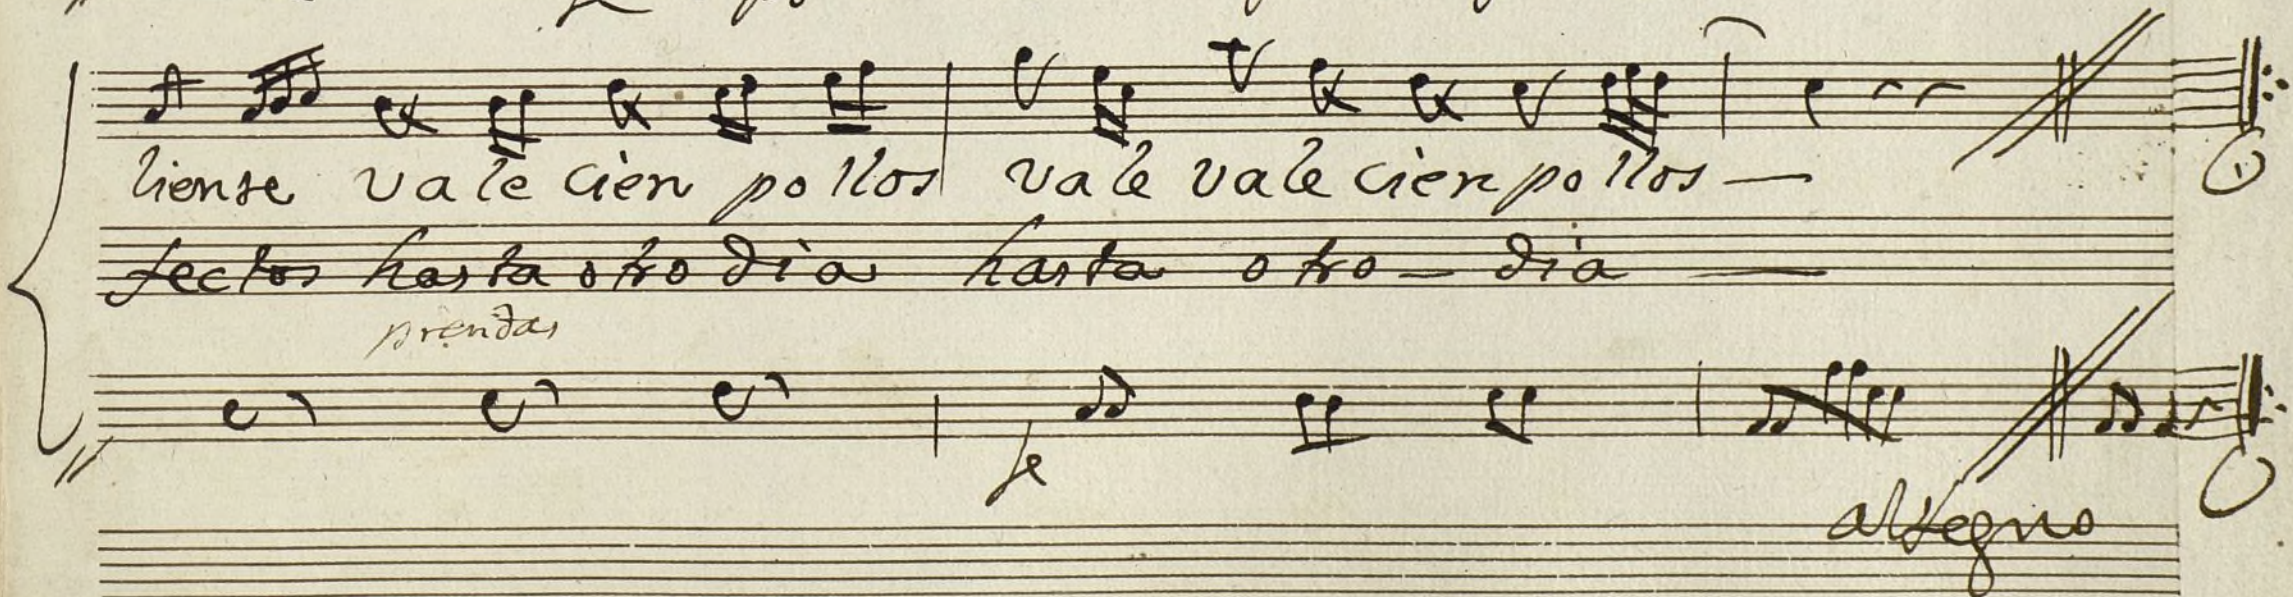 liense vale cièn pollos vale vale cièn pollos —
fectos hasta otro dia hasta otro — dia —
prendas
fe
al Segno